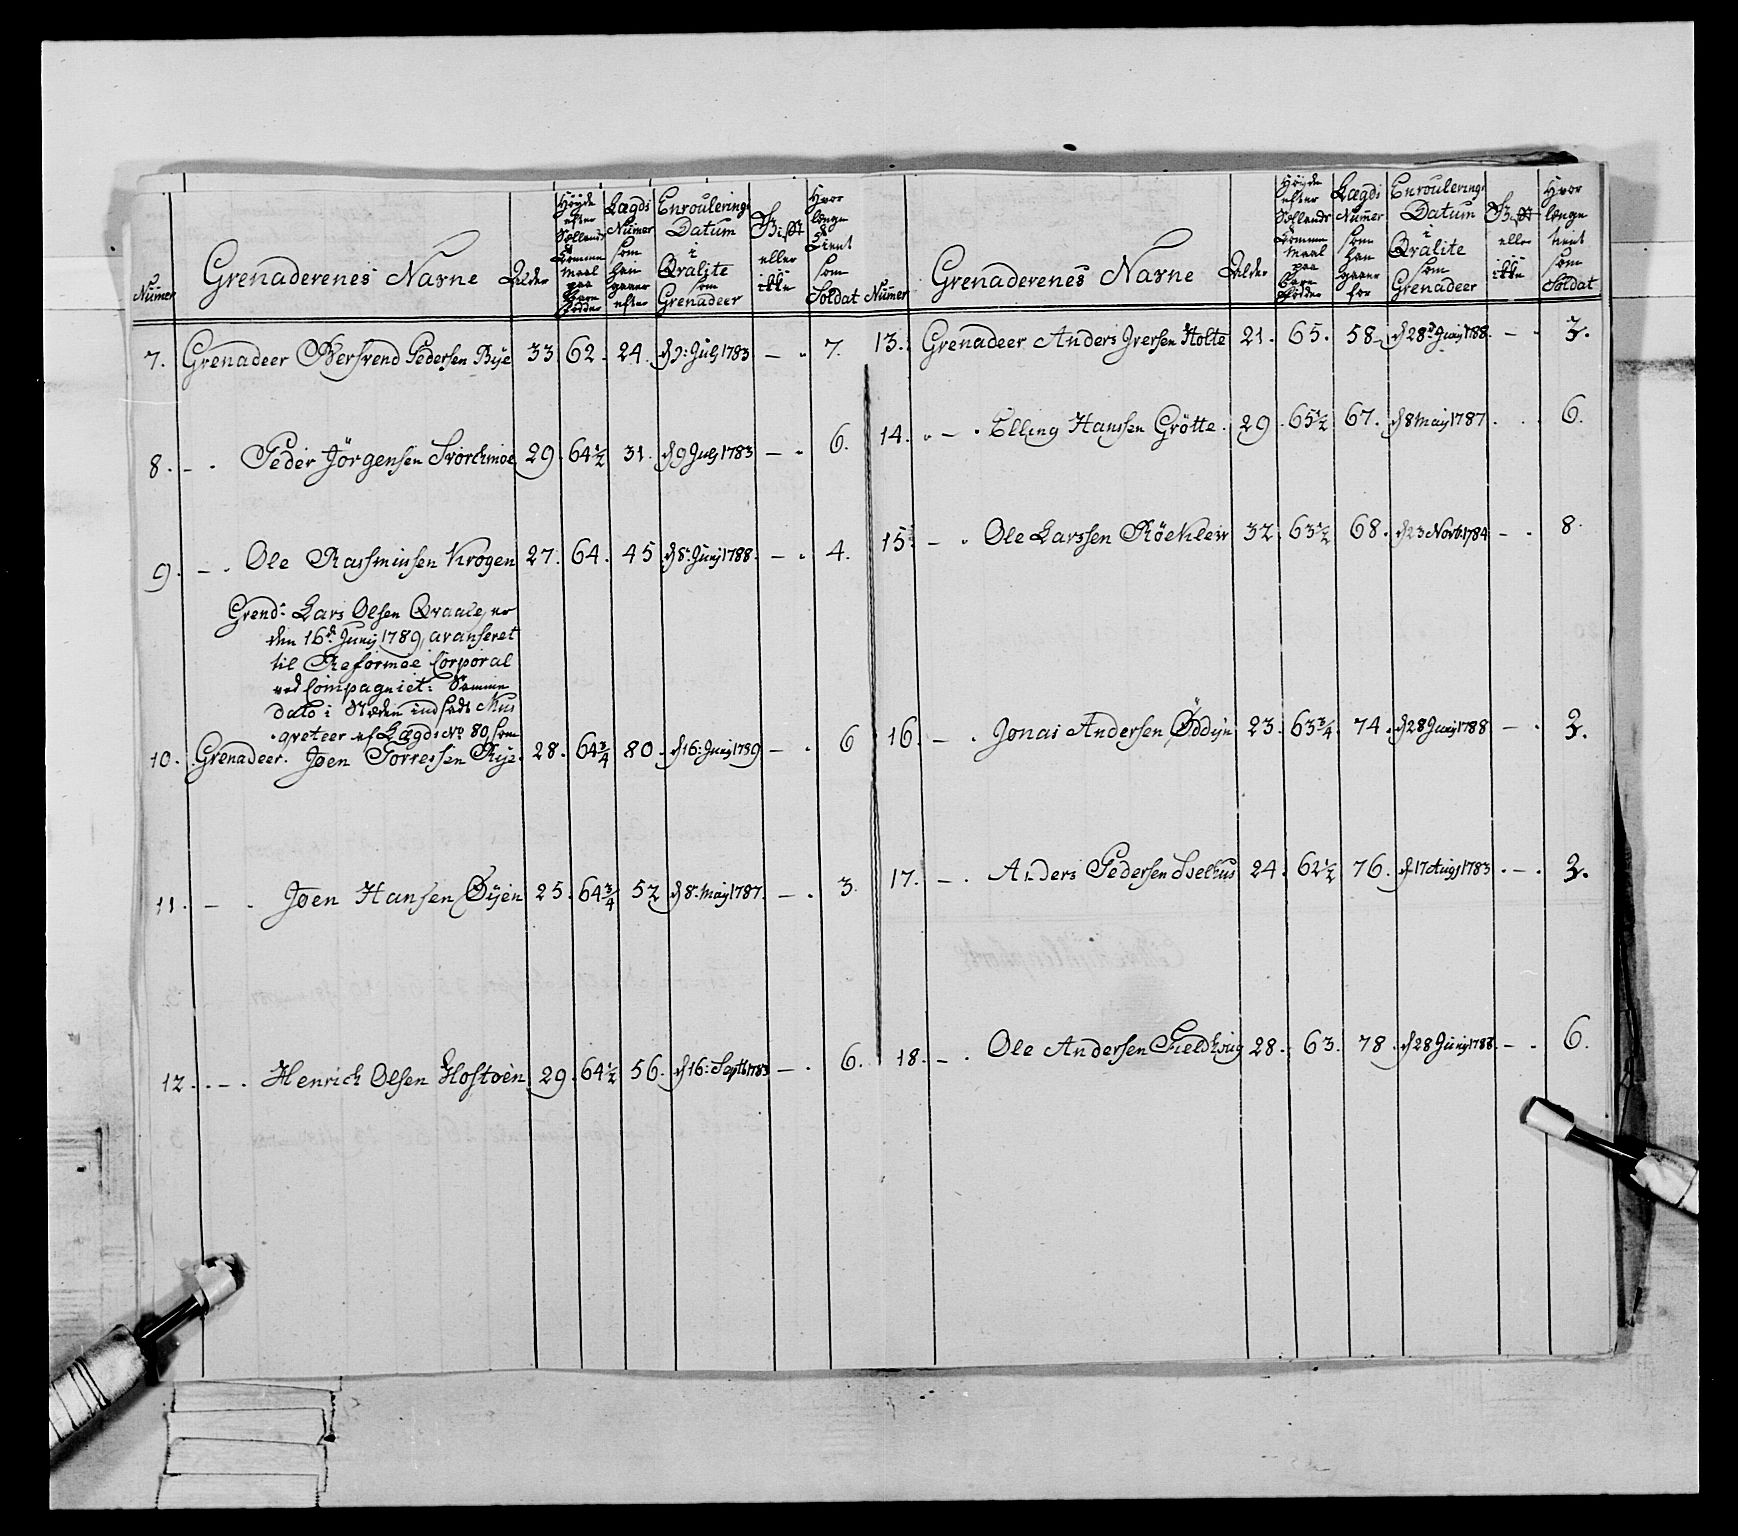 Numer
Grenaderenes Navne
Alder
Höyde efter Sællands Komme Maal paa Bare Födder
Lægds Numer som han gaaer efter
Enroulerings Datum i Qvalite som Grenadeer
Gift eller ikke
Hvor længe tient som Soldat
7. Grenadeer Bersvend Pedersen Bye 33 62. 24. d 9: July 1783 — . 7.
8. — . Peder Jörgensen Storchmoe 29. 64½ 31. d 9 July 1783 — . 6.
9. — . Ole Rassmussen Krogen 27. 64. 45 d 8: Junij 1788. — . 4.
Grend: Lars Olsen Qvaale, er
den 16d Junij 1789, avanseret
til Reformee Corporal
ved Compagniet: Samme
Dato i Stæden indsadt Mus
qveteer af Lægds No 80, som
10. Grenadeer. Joen Torressen Rye. 28. 64¾ 80. d 16: Junij 1789 — . 6
11. — . Joen Hansen Öyen 25. 64¾ 52 d 8: May 1787. — . 3.
12. . — . Henrich Olsen Hostoen 29. 64½ 56. d 16: Septb 1783 — . 6.
Numer
Grenaderenes Navne
Alder
Höyde efter Sællands Komme Maal paa Bare Fodder
Lægds Numer som han gaaer for
Enroulerings Datum i Qvalite som Grenadeer
Gift eller ikke
Hvor længe tient som Soldat
13. Grenadeer Anders Iversen Holte 21. 65. 58. d 28d Junij 1788. — . 3.
14. . — . Elling Hanssen Grötte. 29. 65½ 67. d 8 May 1787. . . 6.
15. — . Ole Larssen 32. 63½ 68. d 23 Novb 1784 — . 8.
16. — . Jonas Andersen Öddyn 23. 63¾ 74. d 28 Junij 1788 — . 3.
17. — . Anders Pedersen Selhus 24. 62½ 76. d 17 Augs 1783 . — . 3.
18. — . Ole Andersen 28. 63. 78. d 28 Junij 1788. — . 6.